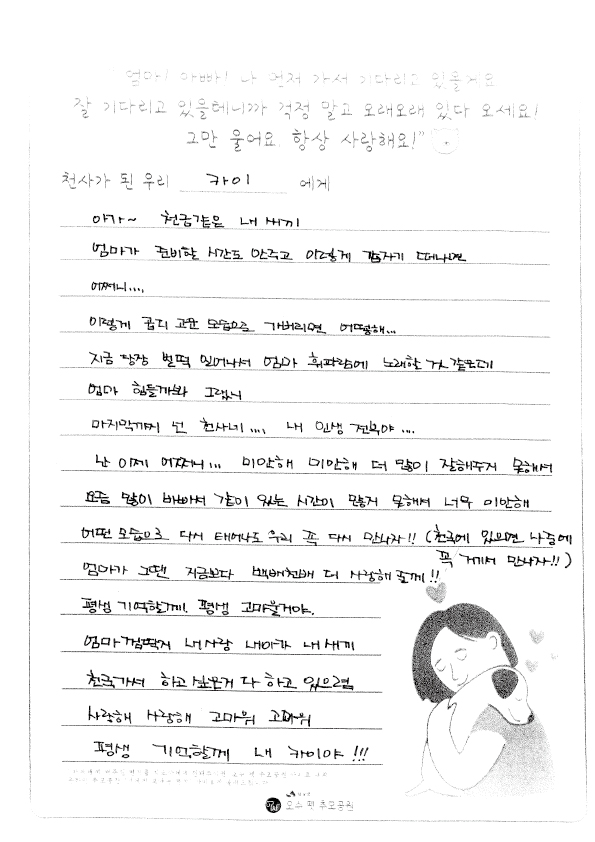 "엄마! 아빠! 나 먼저 가서 기다리고 있을게요
잘 기다리고 있을테니까 걱정 말고 오래오래 있다 오세요!
그만 울어요. 항상 사랑해요!"
천사가 된 우리 카이 에게
아가~ 천금같은 내 새끼
엄마가 준비할 시간도 안주고 이렇게 갑자기 떠나면
어쩌니....
이렇게 곱디 고운 모습으로 가버리면 어떡해...
지금 당장 벌떡 일어나서 엄마 휘파람에 노래할 거 같은데
엄마 힘들까봐 그랬니
마지막까지 넌 천사네.... 내 인생 전부야....
난 이제 어쩌니... 미안해 미안해 더 많이 잘해주지 못해서
요즘 많이 바빠서 같이 있는 시간이 많지 못해서 너무 미안해
어떤 모습으로 다시 태어나도 우리 꼭 다시 만나자!! (천국에 있으면 나중에
꼭 거기서 만나자!!)
엄마가 그땐 지금보다 백배천배 더 사랑해 줄게!!
평생 기억할게. 평생 고마울거야.
엄마껌딱지 내사랑 내아가 내새끼
천국가서 하고 싶은거 다 하고 있으렴
사랑해 사랑해 고마워 고마워
평생 기억할게 내 카이야!!!
오수 펫 추모공원